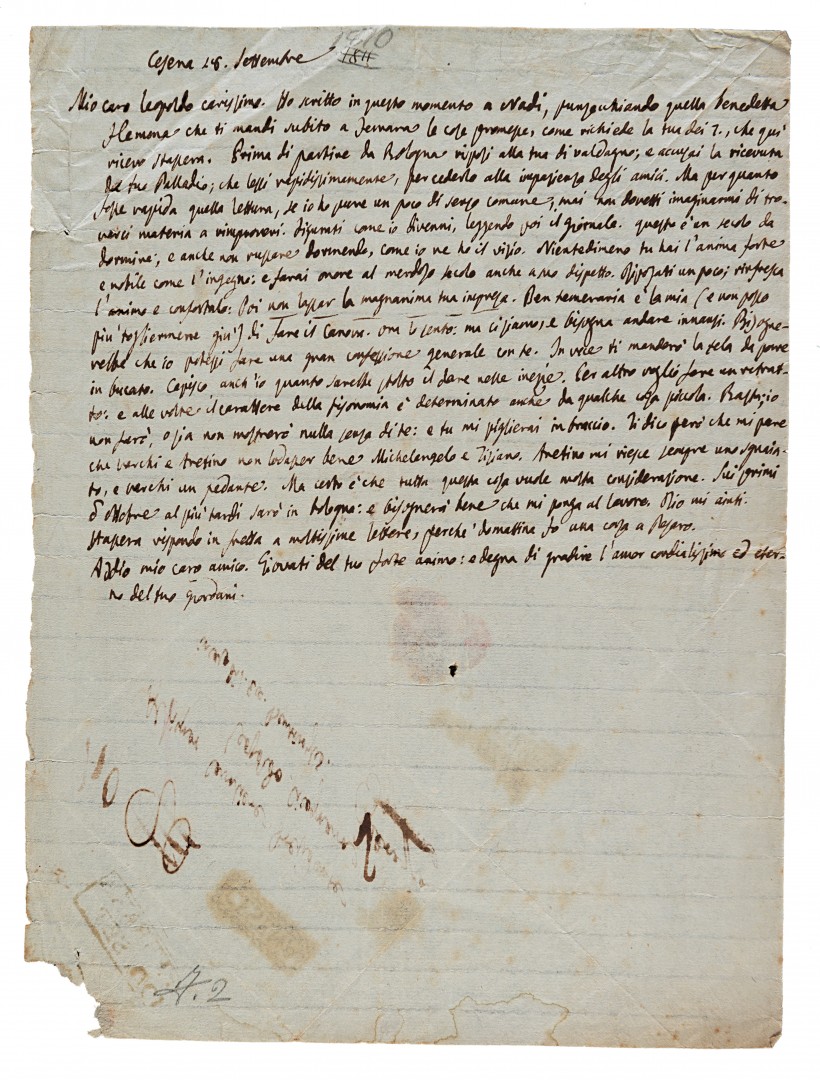 1810
Cesena 28. Settembre 1811
Mio caro Leopoldo carissimo. Ho scritto in questo momento a Nadi, punzecchiando quella benedetta
flemona che ti mandi subito a Ferrara le cose promesse, come richiede la tua dei 7., che qui
ricevo stassera. Prima di partire da Bologna risposi alla tua di Valdagno; e accusai la ricevuta
del tuo Palladio; che lessi rapidissimamente, per cederlo alla impazienza degli amici. Ma per quanto
fosse rapida quella lettura, se io ho pure un poco di senso comune, mai non dovetti imaginarmi di tro-
varci materia a rimproveri. Figurati come io divenni, leggendo poi il giornale. questo è un secolo da
dormire; e anche non russare dormendo, come io ne ho il vizio. Nientedimeno tu hai l'anima forte
e nobile come l'ingegno: e farai onore al merdoso secolo anche a suo dispetto. Riposati un poco; rinfresca
l'animo e confortalo: Poi non lassar la magnanima tua impresa. Ben temeraria è la mia (e non posso
più togliermene giù) di fare il Canova. ora lo sento: ma ci siamo, e bisogna andare innanzi. Bisogne-
rebbe che io potessi fare una gran confessione generale con te. In vece ti manderò la tela da porre
in bucato. Capisco anch'io quanto sarebbe stolto il dare nelle inezie. Per altro voglio fare un ritrat-
to: e alle volte il carattere della fisonomia è determinato anche da qualche cosa piccola. Basta; io
non farò, o sia non mostrerò nulla senza di te: e tu mi piglierai in braccio. Ti dico però che mi pare
che Varchi e Aretino non lodasser bene Michelangelo e Tiziano. Aretino mi riesce sempre uno sguaia-
to, e Varchi un pedante. Ma certo è che tutta questa cosa vuole molta considerazione. Sui primi
d'ottobre al più tardi sarò in bologna: e bisognerà bene che mi ponga al lavoro. Dio mi aiuti.
Stassera rispondo in fretta a moltissime lettere, perchè domattina fo una corsa a Pesaro.
Addio mio caro amico. Giovati del tuo forte animo: e degna di gradire l'amor cordialissimo ed eter-
no del tuo Giordani.
A. 2